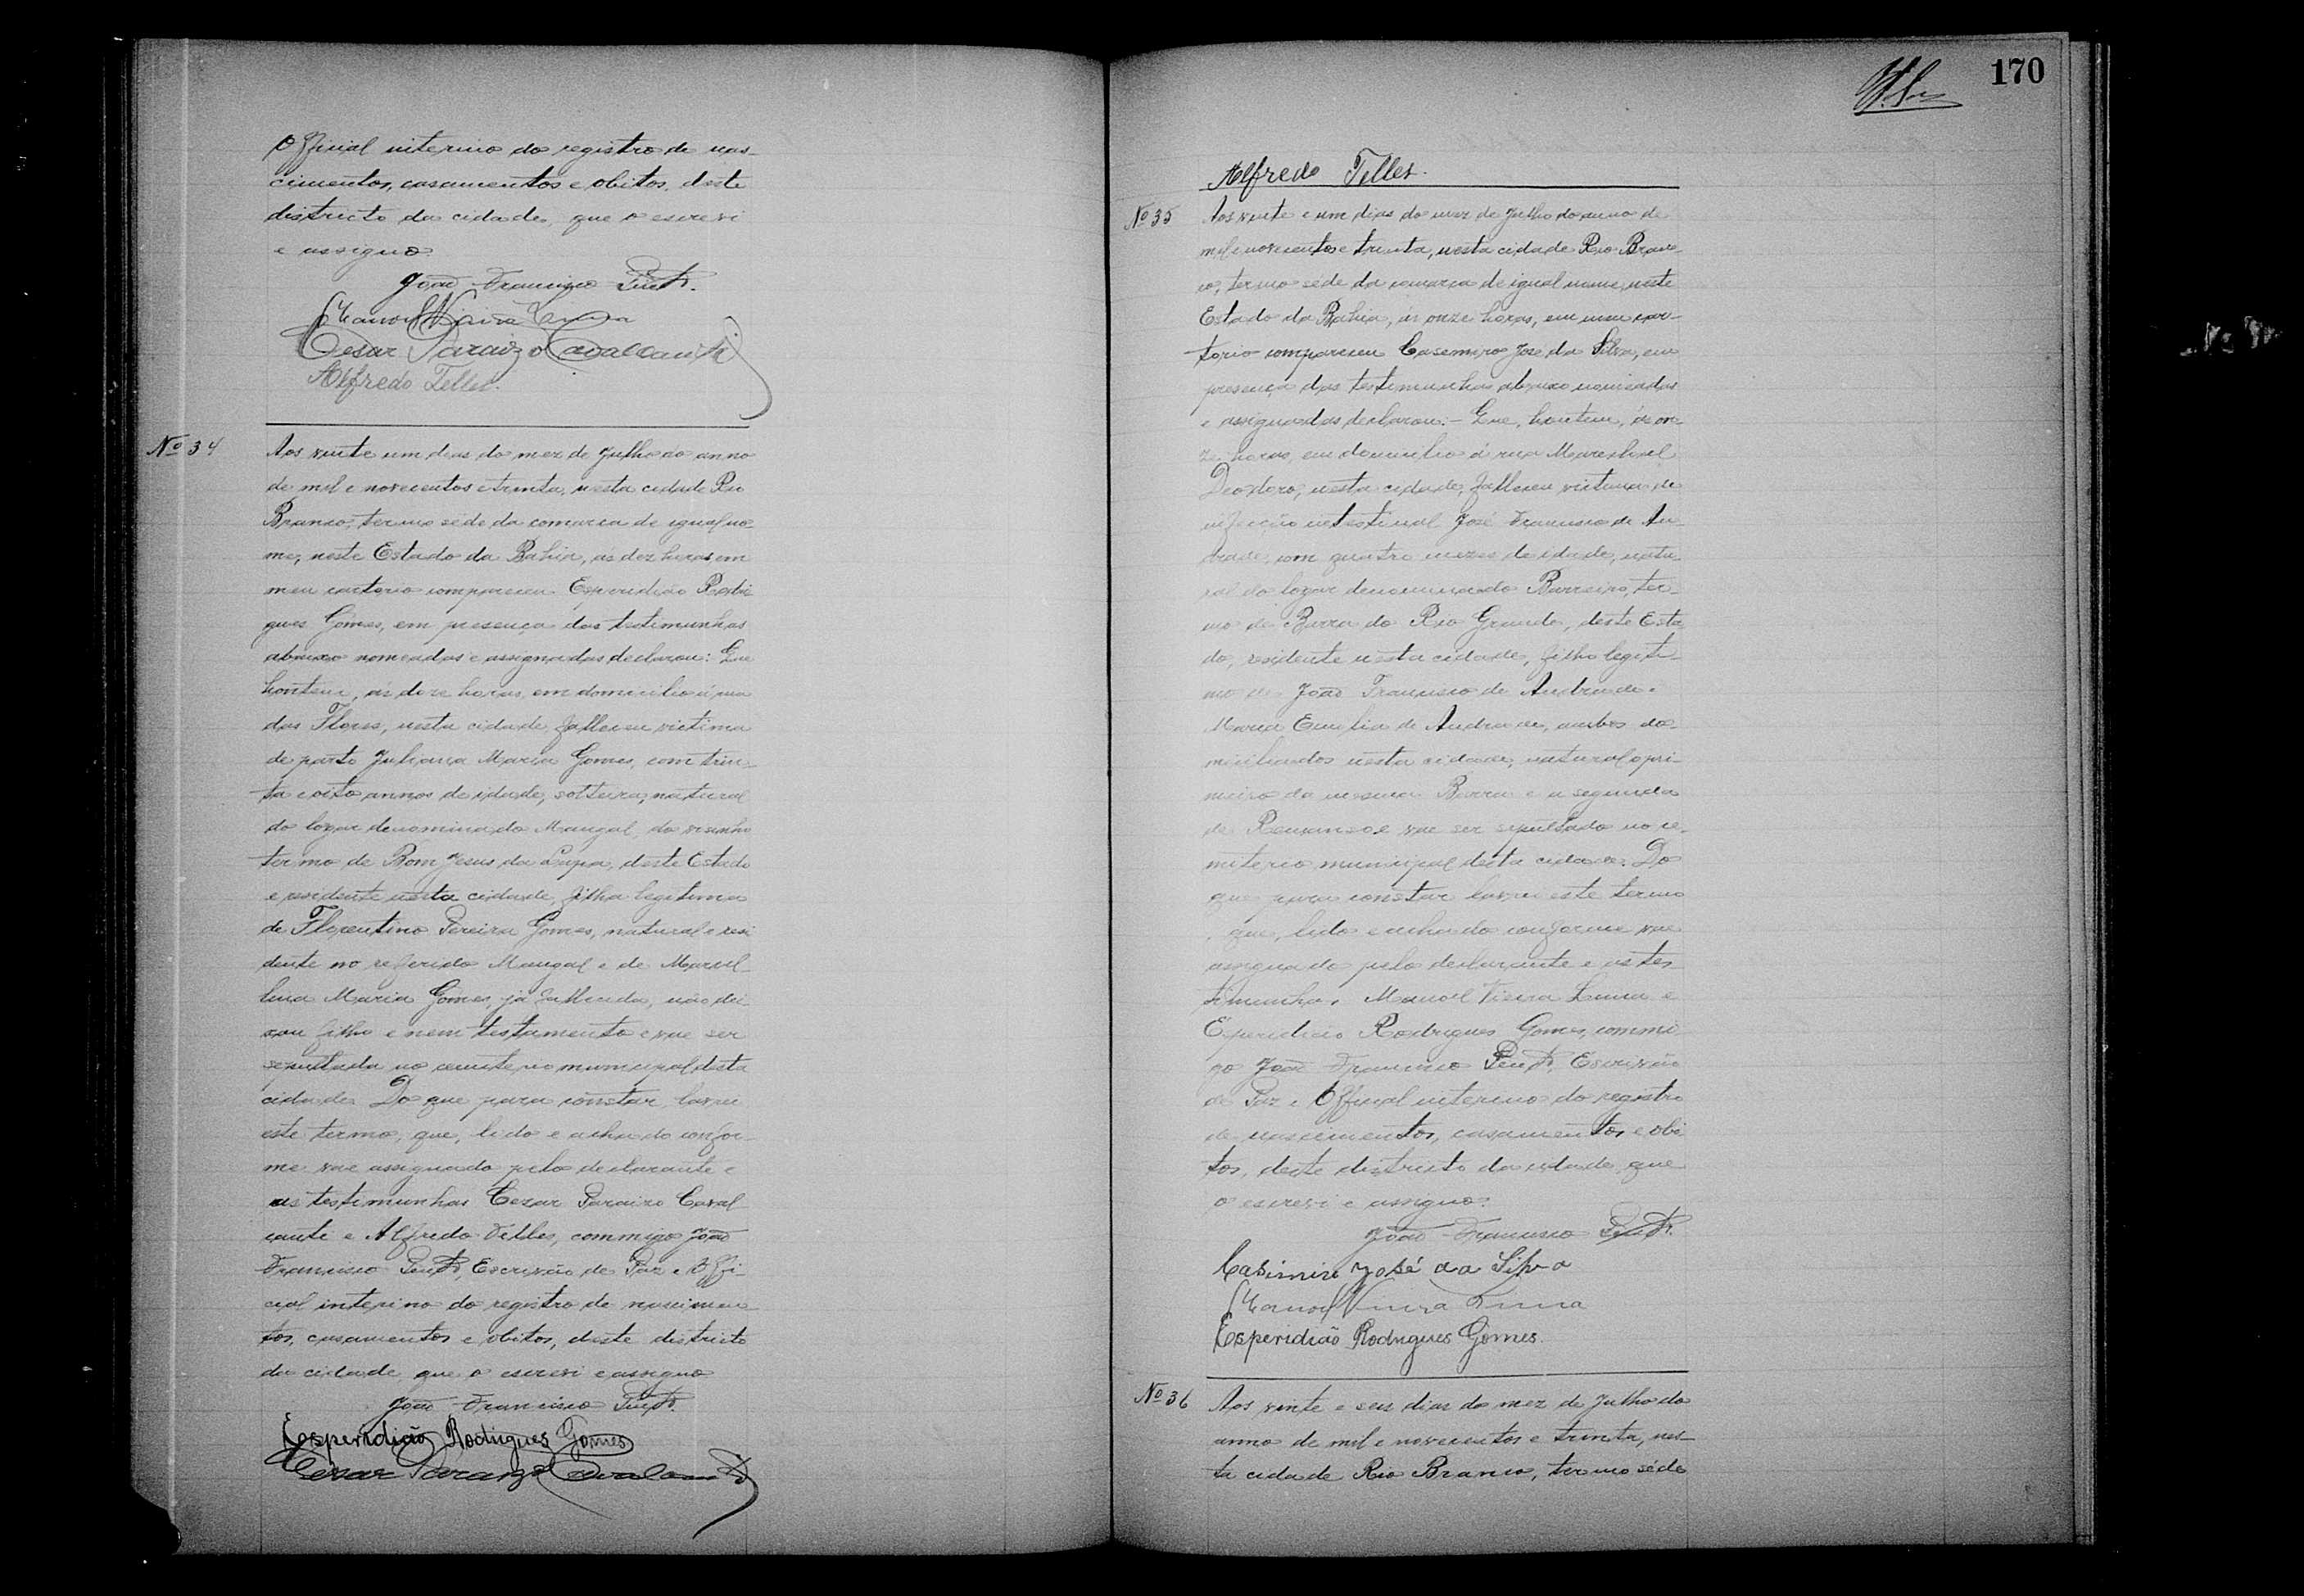 Official interino do registro de nas-
cimentos, casamentos e obitos, deste
districto da cidade, que o escrevi
e assigno
João Francisco
Manoel Vieira Lima
Cesar Paraizo Cavalcanti
Alfredo Telles.
Nº 34
Aos vinte um dias do mez de Julho do anno
de mil e novecentos e trinta, nesta cidade Rio
Branco, termo séde da comarca de igual no-
me, neste Estado da Bahia, as dez horas em
meu cartorio compareceu Esperidião Rodri
gues Gomes, em presença das testimunhas
abaixo nomeadas e assignadas declarou: Que
hontem, ás doze horas, em domicilio á rua
das Flores, nesta cidade, falleceu victima
de parto Juliana Maria Gomes, com trin-
ta e oito annos de idade, solteira, natural
do logar denominado Mangal, do visinho
termo de Bom Jesus da Lapa, deste Estado
e residente nesta cidade, filha legitima
de Florentino Pereira Gomes, natural e resi
dente no referido Mangal e de Marcul-
lina Maria Gomes, já fallecida, não dei-
xou filho e nem testamento e vae ser
sepultada no cemiterio municipal desta
cidade. Do que para constar, lavrei
este termo, que, lido e achado confor-
me vae assignado pelo declarante e
as testimunhas Cezar Paraizo Caval
cante e Alfredo Telles, commigo João
Francisco Escrivão de Paz e Offi-
cial interino do registro de nascimen-
tos, casamentos e obitos, deste districto
da cidade, que o escrevi e assigno
João Francisco
Esperidião Rodrigues Gomes
Cesar Paraizo Cavalcanti
170
Alfredo Telles.
Nº 35
Aos vinte e um dias do mez de Julho do anno de
mil e novecentos e trinta, nesta cidade Rio Bran-
co, termo séde da comarca de igual nome, neste
Estado da Bahia, ás onze horas, em meu car-
torio compareceu Casemiro José da Silva, em
presença das testimunhas abaixo nomeadas
e assignadas declarou:- Que, hontem, ás on-
ze horas, em domicilio á rua Marechal
Deodoro, nesta cidade, falleceu victima de
infecção intestinal José Francisco de An-
drade, com quatro mezes de idade, natu-
ral do logar denominado Barreiro, ter-
mo de Barra do Rio Grande, deste Esta
do, residente nesta cidade, filho legiti-
mo de João Francisco de Andrade e
Maria Emilia de Andrade, ambos do-
miciliados nesta cidade, natural o pri-
meiro da mesma Barra e a segunda
de Remanso e vae ser sepultado no ce-
miterio municipal desta cidade. Do
que, para constar lavrei este termo
que, lido e achado conforme vae
assignado pelo declarante e as tes-
timunhas Manoel Vieira Lima e
Esperidião Rodrigues Gomes, commi
go João Francisco Escrivão
de Paz e Official interino do registro
de nascimentos, casamentos e obi
tos, deste districto da cidade, que
o escrevi e assigno.
João Francisco
Casimiro José da Silva
Manoel Vieira Lima
Esperidião Rodrigues Gomes.
Nº 36
Aos vinte e seis dias do mez de Julho do
anno de mil e novecentos e trinta, nes-
ta cidade Rio Branco, termo séde